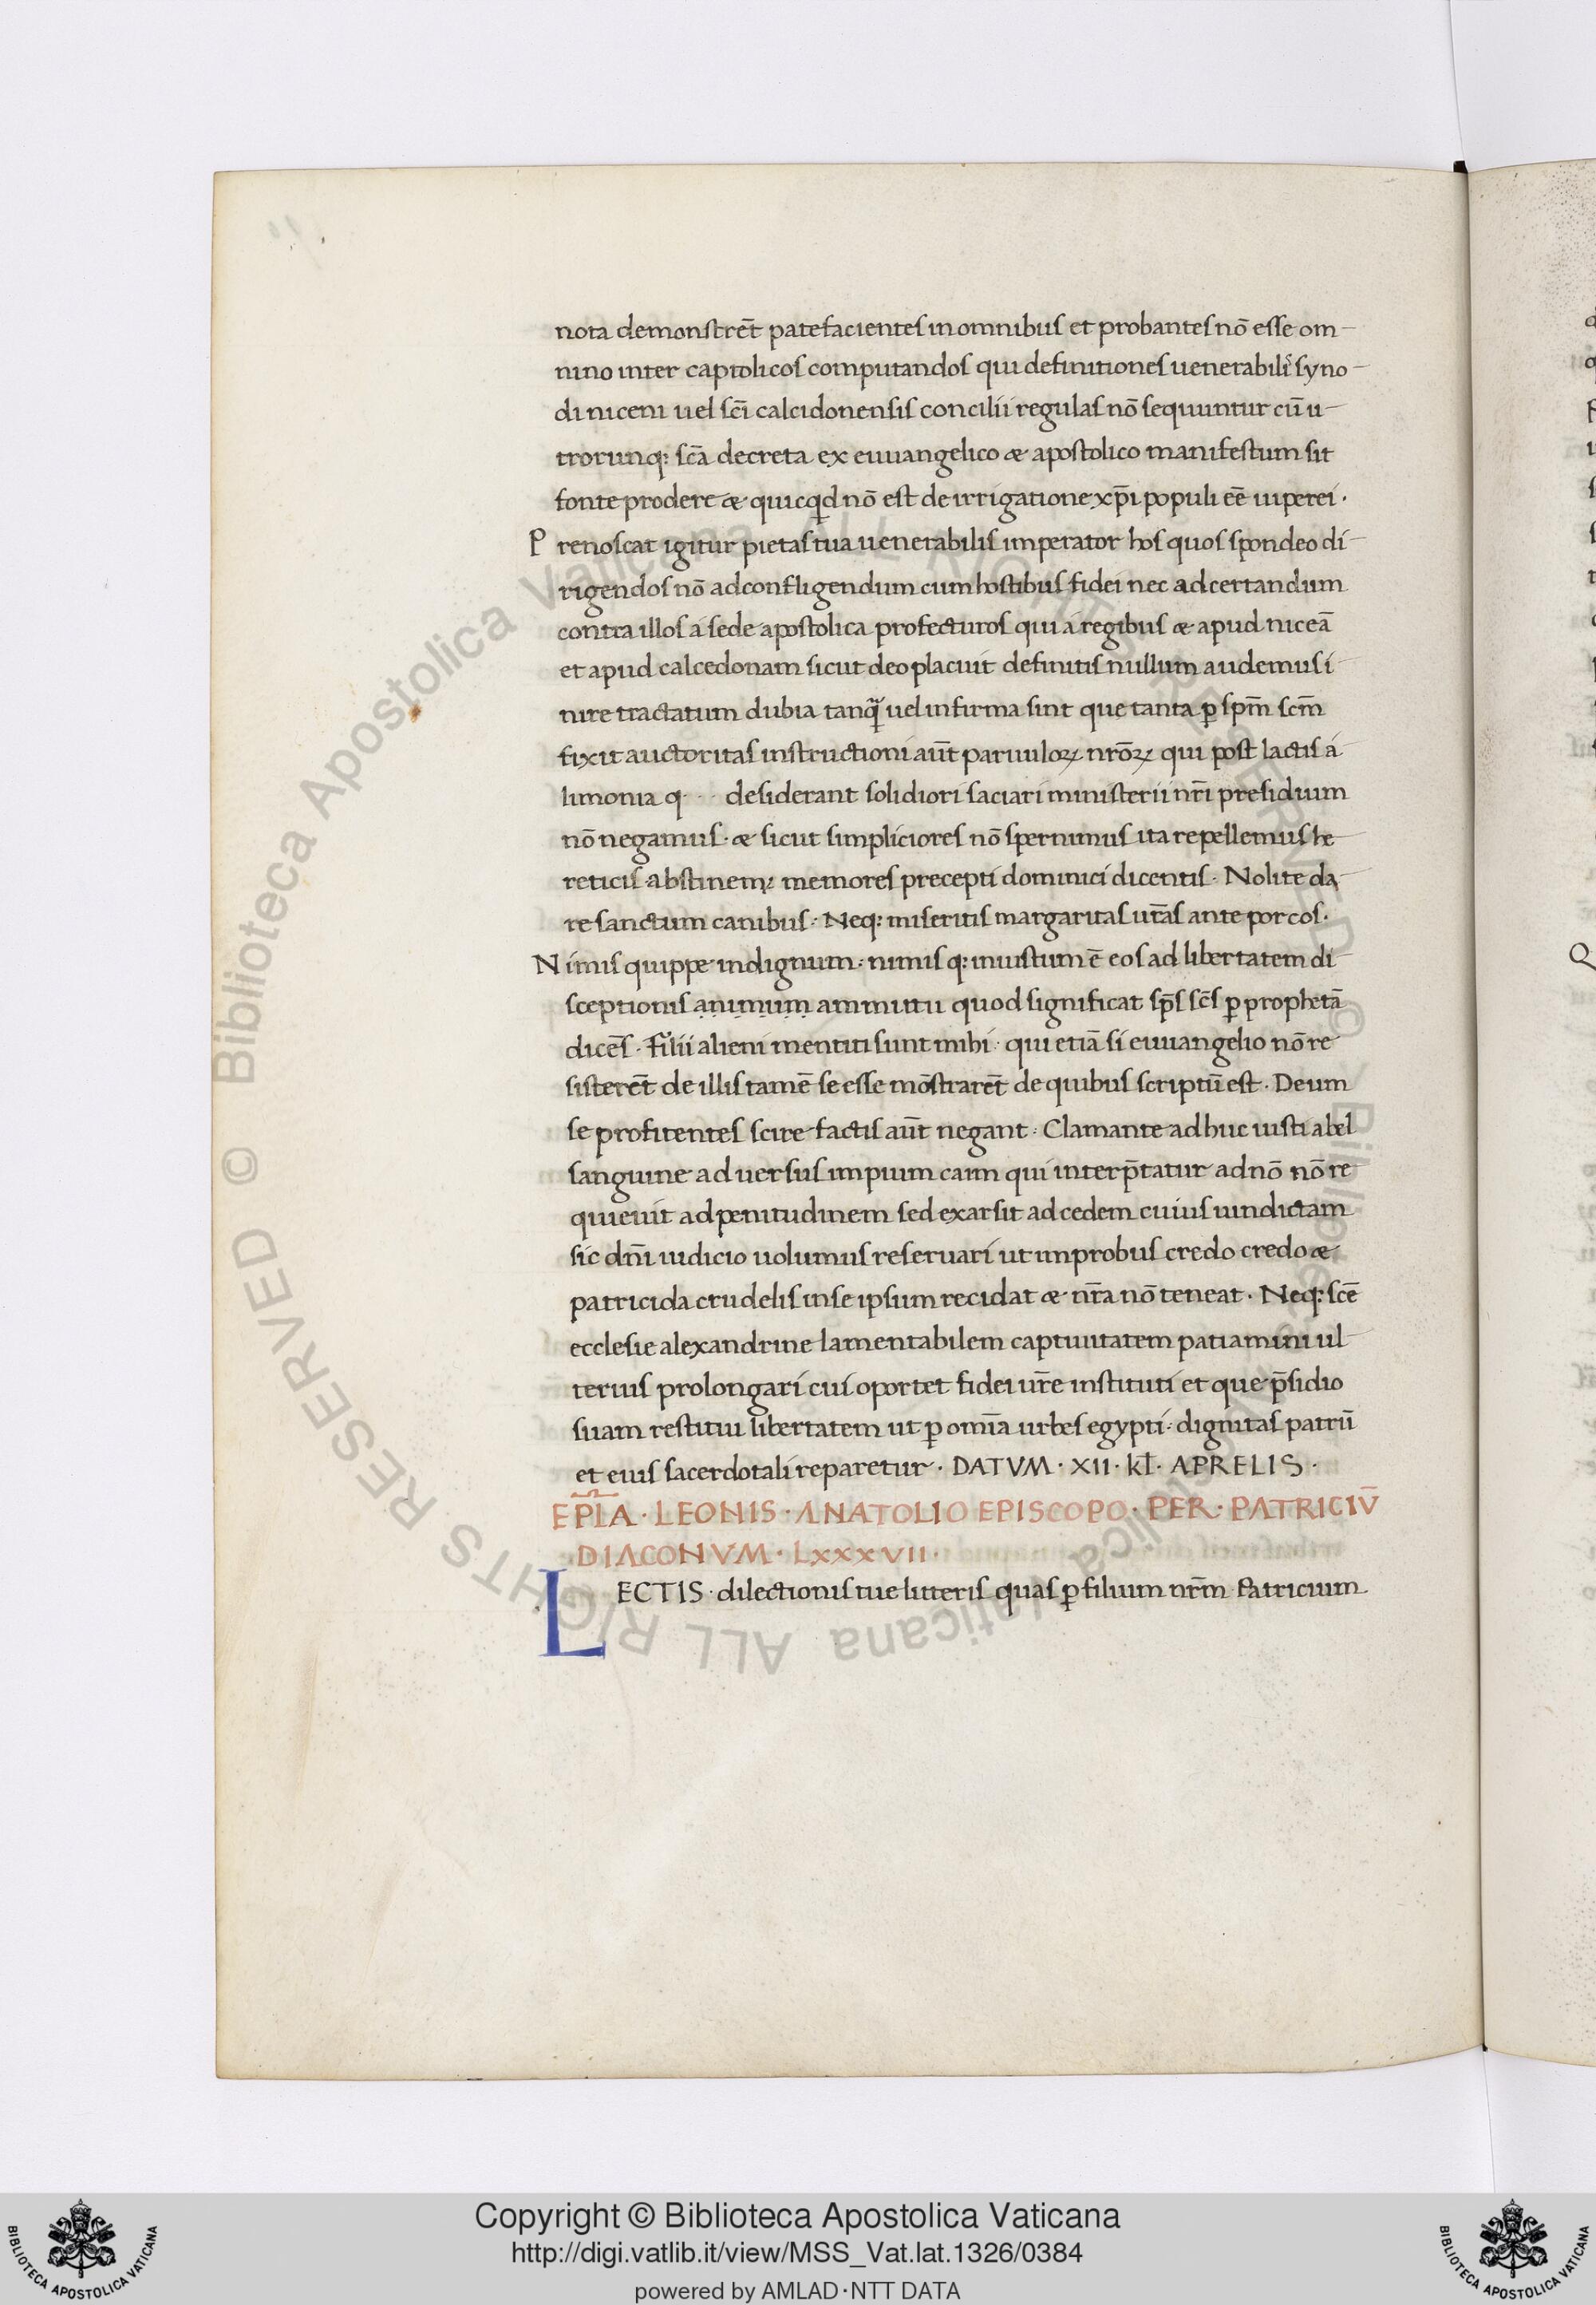 nota demonstrēt patefacientes in omnibus et probantes nō esse om-
nino inter captolicos computandos qui definitiones uenerabilis syno-
di niceni uel scī calcidonensis concilii regulas nō sequuntur cū u-
trorunq; scā decreta ex euuangelico & apostolico manifestum sit
fonte prodere & quicqd nō est de irrigatione xp̄i populi eē uiperei.
Prenoscat igitur pietas tua uenerabilis imperator hos quos spondeo di-
rigendos nō ad confligendum cum hostibus fidei nec ad certandum
contra illos a sede apostolica profecturos qui a regibus & apud niceā
et apud calcedonam sicut deo placuit definitis nullum audemus i-
nire tractatum dubia tanq̄ uel infirma sint que tanta ꝑ spm̄ scm̄
fixit auctoritas instructioni aūt paruuloꝝ nrōꝝ qui post lactis a-
limonia q desiderant solidiori saciari ministerii nrī presidium
nō negamus. & sicut simpliciores nō spernimus ita repellemus he-
reticis abstinem; memores precepti dominici dicentis. Nolite da-
re sanctum canibus. Neq; miseritis margaritas urās ante porcos.
Nimis quippe indignum. nimis q; iniustum ē eos ad libertatem di-
sceptionis animum ammittu quod significat sp̄s scs̄ ꝑ prophetā
dicēs. Filii alieni mentiti sunt mihi. qui etiā si euuangelio nō re-
sisterēt de illis tamē se esse mōstrarēt de quibus scriptū est. Deum
se profitentes scire factis aūt negant. Clamante adhuc iusti abel
sanguine aduersus impium cain qui interp̄tatur ad nō nō re
quieuit ad penitudinem sed exarsit ad cedem cuius uindictam
sic dnī iudicio uolumus reseruari ut improbus credo credo &
patricida crudelis in se ipsum recidat & nrā nō teneat. Neq; scē
ecclesie alexandrine lamentabilem captiuitatem patiamini ul-
terius prolongari cui oportet fidei urē instituti et que p̄sidio
suam restitui libertatem ut ꝑ omīa urbes egypti. dignitas patrū
et eius sacerdotali reparetur. DATVM. XII. kł. APRELIS.
EPLA. LEONIS. ANATOLIO EPISCOPO. PER. PATRICIV̄
.DIACONVM. LXXXVII.
LECTIS. dilectionis tue litteris quas ꝑ filium nrm̄ Patricium
Copyright © Biblioteca Apostolica Vaticana
http://digi.vatlib.it/view/MSS_Vat.lat.1326/0384
powered by AMLAD·NTT DATA
© Biblioteca Apostolica Vaticana ALL RIGHTS RESERVED
© Biblioteca Apostolica Vaticana ALL RIGHTS RESERVED
BIBLIOTECA APOSTOLICA VATICANA
BIBLIOTECA APOSTOLICA VATICANA